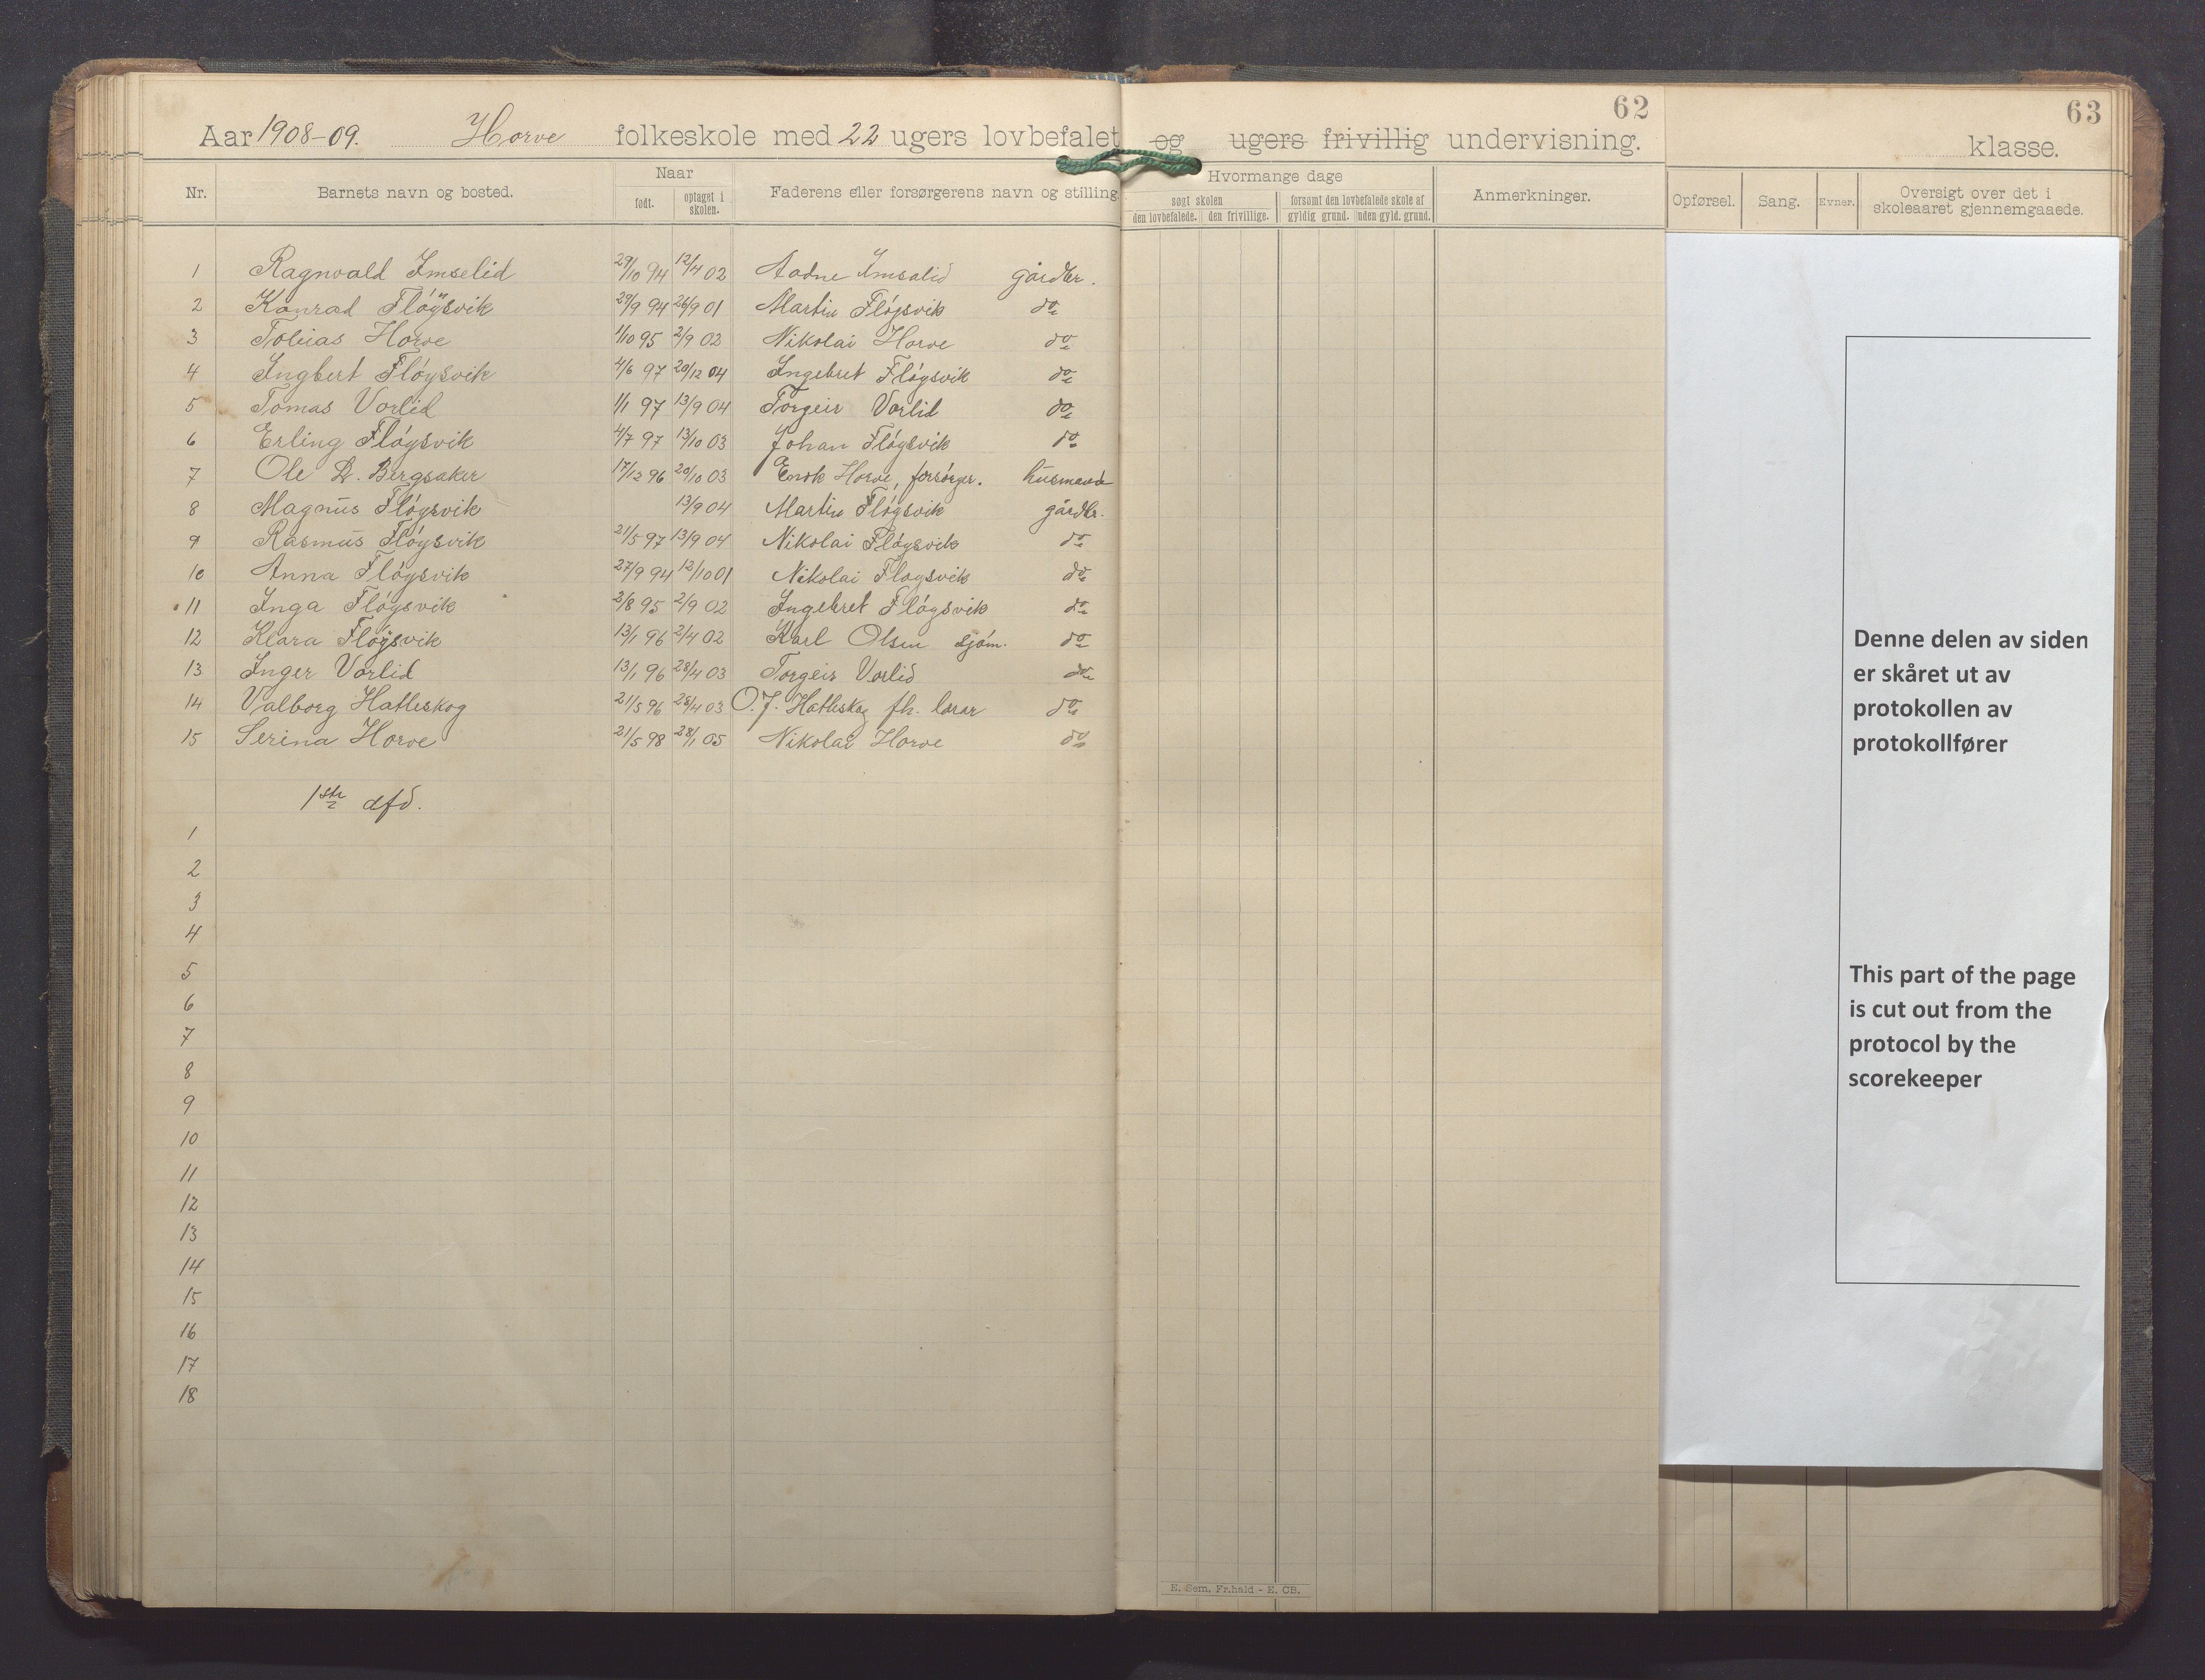 62
63
Aar 1908-09. Horve folkeskole med 22 ugers lovbefalet og ugers frivillig undervisning.
klasse.
Nr. Barnets navn og bosted. Naar Faderens eller forsørgerens navn og stilling Hvormange dage Anmerkninger. Opførsel. Sang. Evner. Oversigt over det i skoleaaret gjennemgaaede.
født. optaget i skolen. søgt skolen forsømt den lovbefalede skole af
den lovbefalede. den frivillige. gyldig grund. uden gyld. grund.
1 Ragnvald Imselid 29/10 94 12/4 02 Aadne Imsalid gårdbr.
2 Konrad Fløysvik 29/9 94 26/9 01 Martin Fløysvik do
3 Tobias Horve 1/10 95 2/9 02 Nikolai Horve do
4 Ingbert Fløysvik 4/6 97 20/12 04 Ingebret Fløysvik do
5 Tomas Vorlid 1/1 97 13/9 04 Torgeir Vorlid do
6 Erling Fløysvik 4/7 97 13/10 03 Johan Fløysvik do
7 Ole D. Bergsaker 17/12 96 20/10 03 Enok Horve, forsørger. husmand
8 Magnus Fløysvik 13/9 04 Martin Fløysvik gårdbr.
9 Rasmus Fløysvik 21/5 97 13/9 04 Nikolai Fløysvik do
10 Anna Fløysvik 27/9 94 12/10 01 Nikolai Fløysvik do
11 Inga Fløysvik 2/8 95 2/9 02 Ingebret Fløysvik do
12 Klara Fløysvik 13/1 96 2/4 02 Karl Olsen sjøm. do
13 Inger Vorlid 13/1 96 28/4 03 Torgeir Vorlid do
14 Valborg Hatleskog 21/5 96 28/4 03 O. J. Hatleskog fh. lærar do
15 Serina Horve 21/5 98 28/1 05 Nikolai Horve do
1ste afd.
1
2
3
4
5
6
7
8
9
10
11
12
13
14
15
16
17
18
E. Sem, Fr.hald - E. CB.
Denne delen av siden
er skåret ut av
protokollen av
protokollfører
This part of the page
is cut out from the
protocol by the
scorekeeper